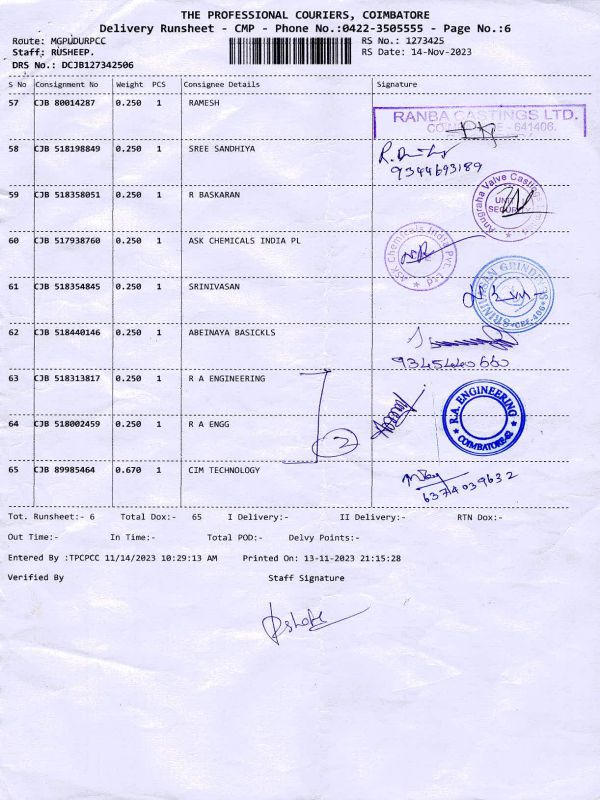 THE PROFESSIONAL COURIERS, COIMBATORE
Delivery Runsheet - CMP - Phone No.:0422-3505555 - Page No.:6
Route: MGPUDURPCC RS No.: 1273425
Staff: RUSHEEP. RS Date: 14-Nov-2023
DRS No.: DCJB127342506
S No Consignment No Weight PCS Consignee Details Signature
57 CJB 80014287 0.250 1 RAMESH
RANBA CASTINGS LTD.
641406.
58 CJB 518198849 0.250 1 SREE SANDHIYA
9344693189
59 CJB 518358051 0.250 1 R BASKARAN
Anugraha Valve Castings
UNIT
SECURITY
60 CJB 517938760 0.250 1 ASK CHEMICALS INDIA PL
ASK Chemicals India Pvt.
61 CJB 518354845 0.250 1 SRINIVASAN
SRINIVASAN GRINDERS
CBE-406
62 CJB 518440146 0.250 1 ABEINAYA BASICKLS
9345440660
63 CJB 518313817 0.250 1 R A ENGINEERING
R.A. ENGINEERING
COIMBATORE-62
2
64 CJB 518002459 0.250 1 R A ENGG
65 CJB 89985464 0.670 1 CIM TECHNOLOGY
6374039632
Tot. Runsheet:- 6 Total Dox:- 65 I Delivery:- II Delivery:- RTN Dox:-
Out Time:- In Time:- Total POD:- Delvy Points:-
Entered By :TPCPCC 11/14/2023 10:29:13 AM Printed On: 13-11-2023 21:15:28
Verified By Staff Signature